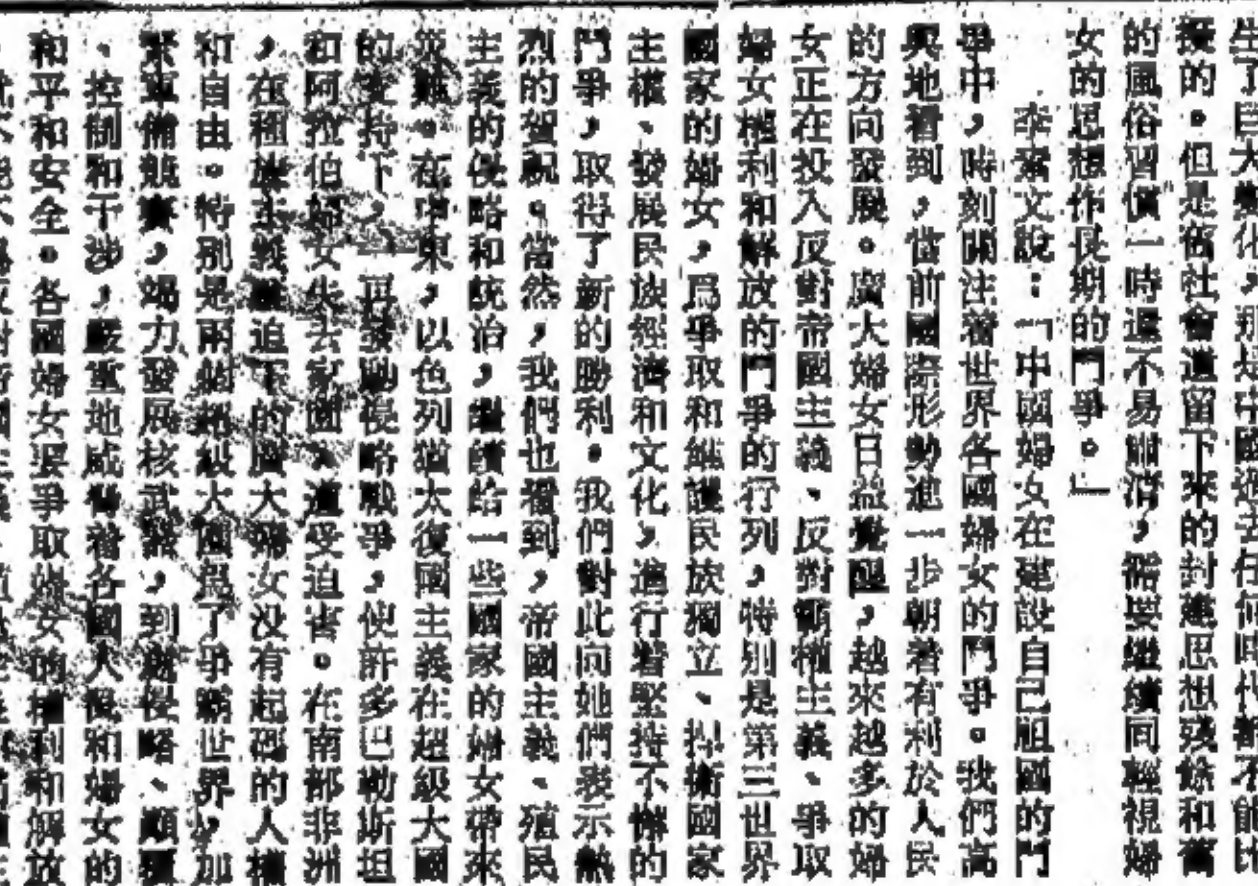 生了巨大變化，那是中國過去任何時代都不能比
擬的。但是舊社會遺留下來的封建思想殘餘和舊
的風俗習慣一時還不易肅消，需要繼續同輕視婦
女的思想作長期的鬥爭。」
李素文說：「中國婦女在建設自己祖國的鬥
爭中，時刻關注着世界各國婦女的鬥爭。我們高
興地看到，當前國際形勢進一步朝着有利於人民
的方向發展。廣大婦女日益覺醒，越來越多的婦
女正在投入反對帝國主義、反對霸權主義、爭取
婦女權利和解放的鬥爭的行列，特別是第三世界
國家的婦女，爲爭取和維護民族獨立、捍衛國家
主權、發展民族經濟和文化，進行着堅持不懈的
鬥爭，取得了新的勝利。我們對此向她們表示熱
烈的祝賀。當然，我們也看到，帝國主義、殖民
主義的侵略和統治，繼續給一些國家的婦女帶來
災難。在中東，以色列猶太復國主義在超級大國
的支持下，一再發動侵略戰爭，使許多巴勒斯坦
和阿拉伯婦女失去家園、遭受迫害。在南部非洲
，在種族主義壓迫下的廣大婦女沒有起碼的人權
和自由。特別是兩個超級大國爲了爭霸世界，加
緊軍備競賽，竭力發展核武器，到處侵略、顛覆
、控制和干涉，嚴重地威脅着各國人民和婦女的
和平和安全。各國婦女要爭取婦女的權利和解放